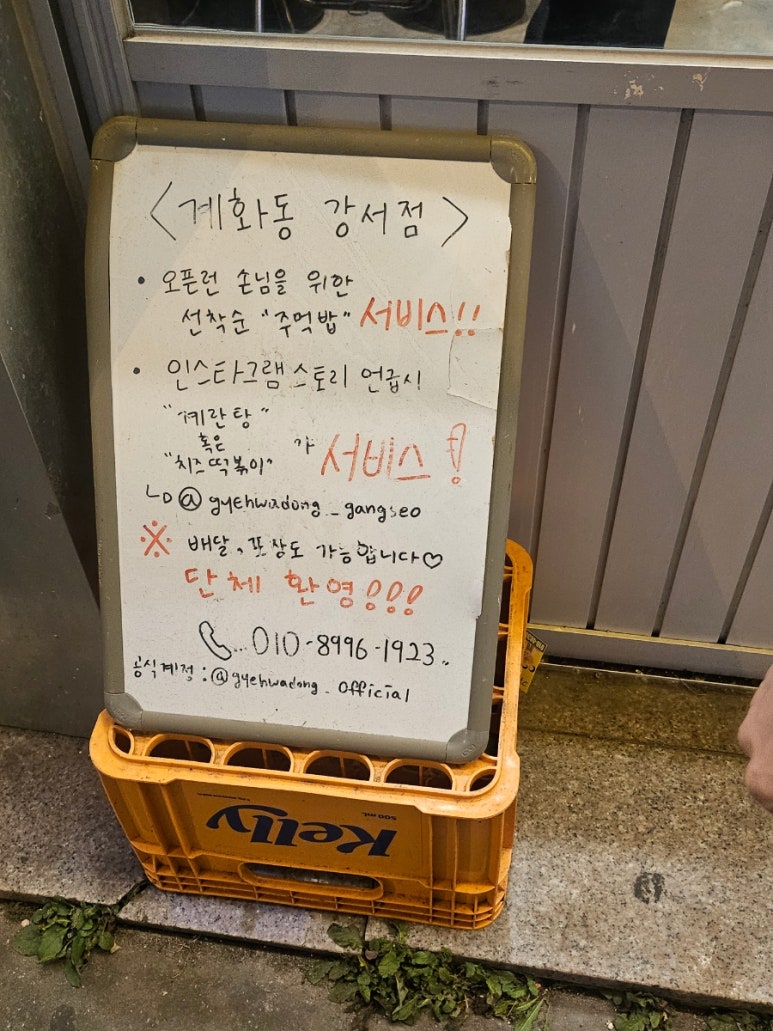 <계화동 강서점>
• 오픈런 손님을 위한
선착순 "주먹밥" 서비스!!
• 인스타그램 스토리 언급시
"계란탕"
혹은
"치즈떡볶이" 가 서비스!
↳ @gyehwadong_gangseo
※ 배달, 포장도 가능합니다♡
단체 환영!!!
010-8996-1923..
공식계정 : @gyehwadong_official
Kelly
500 mL